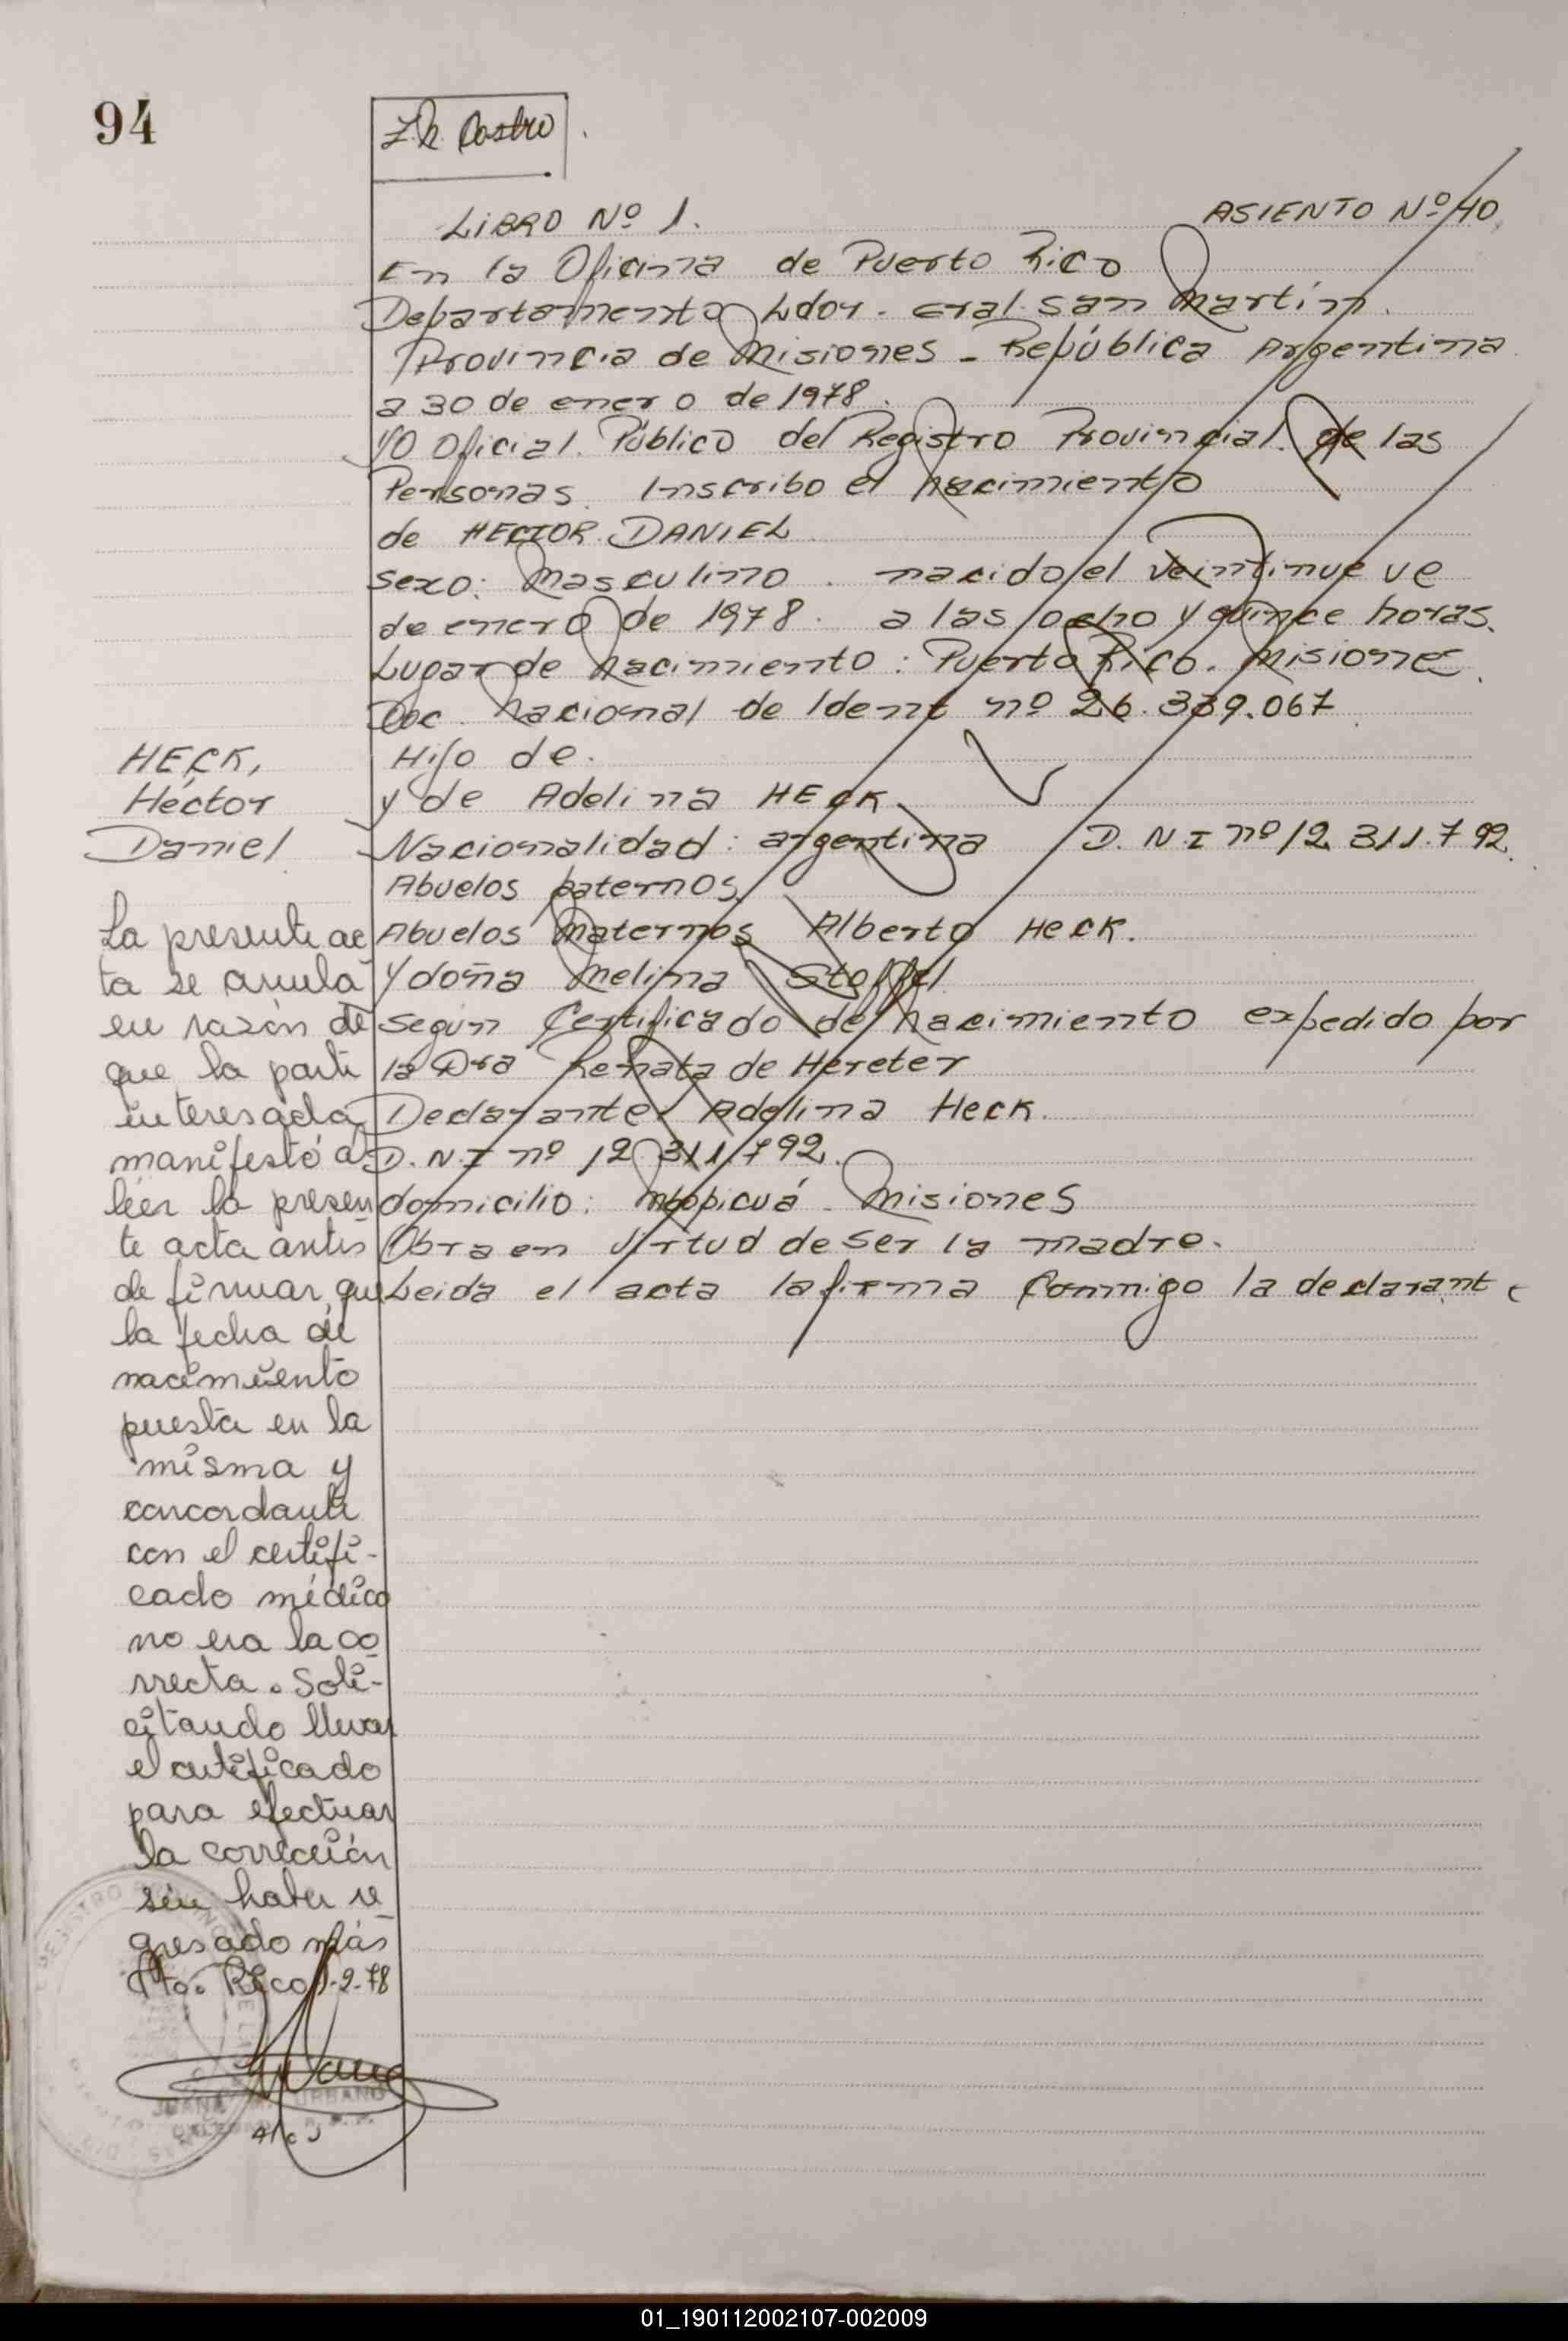 94
Z.R. Castro
LIBRO Nº 1. ASIENTO Nº 40
En la Oficina de Puerto Rico
Departamento Ldor. Gral. San Martín.
Provincia de Misiones - República Argentina
a 30 de enero de 1978.
Yo Oficial Público del Registro Provincial de las
Personas. Inscribo el nacimiento
de HECTOR DANIEL
sexo: Masculino. nacido el veintinueve
de enero de 1978. a las ocho y quince horas.
Lugar de Nacimiento: Puerto Rico. Misiones
Doc. Nacional de Ident nº 26.339.067
Hijo de.
y de Adelina HECK
Nacionalidad: argentina D.N.I nº 12.311.792.
Abuelos paternos
Abuelos Maternos Alberto Heck.
y doña Melina Stoffel
según Certificado de Nacimiento expedido por
la Dra Renata de Hereter
Declarante: Adelina Heck.
D.N.I nº 12.311.792.
domicilio: Mbopicuá - Misiones
Obra en virtud de ser la madre.
Leida el acta la firma conmigo la declarante
HECK,
Héctor
Daniel
La presente ac
ta se anula
en razón de
que la parte
interesada
manifestó al
léer la presen
te acta antes
de firmar, que
la fecha de
nacimiento
puesta en la
misma y
concordante
con el certifi-
cado médico
no era la co
rrecta. Soli-
citando llevar
el certificado
para efectuar
la corrección
sin haber re
gresado más
Pto. Rico 1-2-78
JUANA URBANO